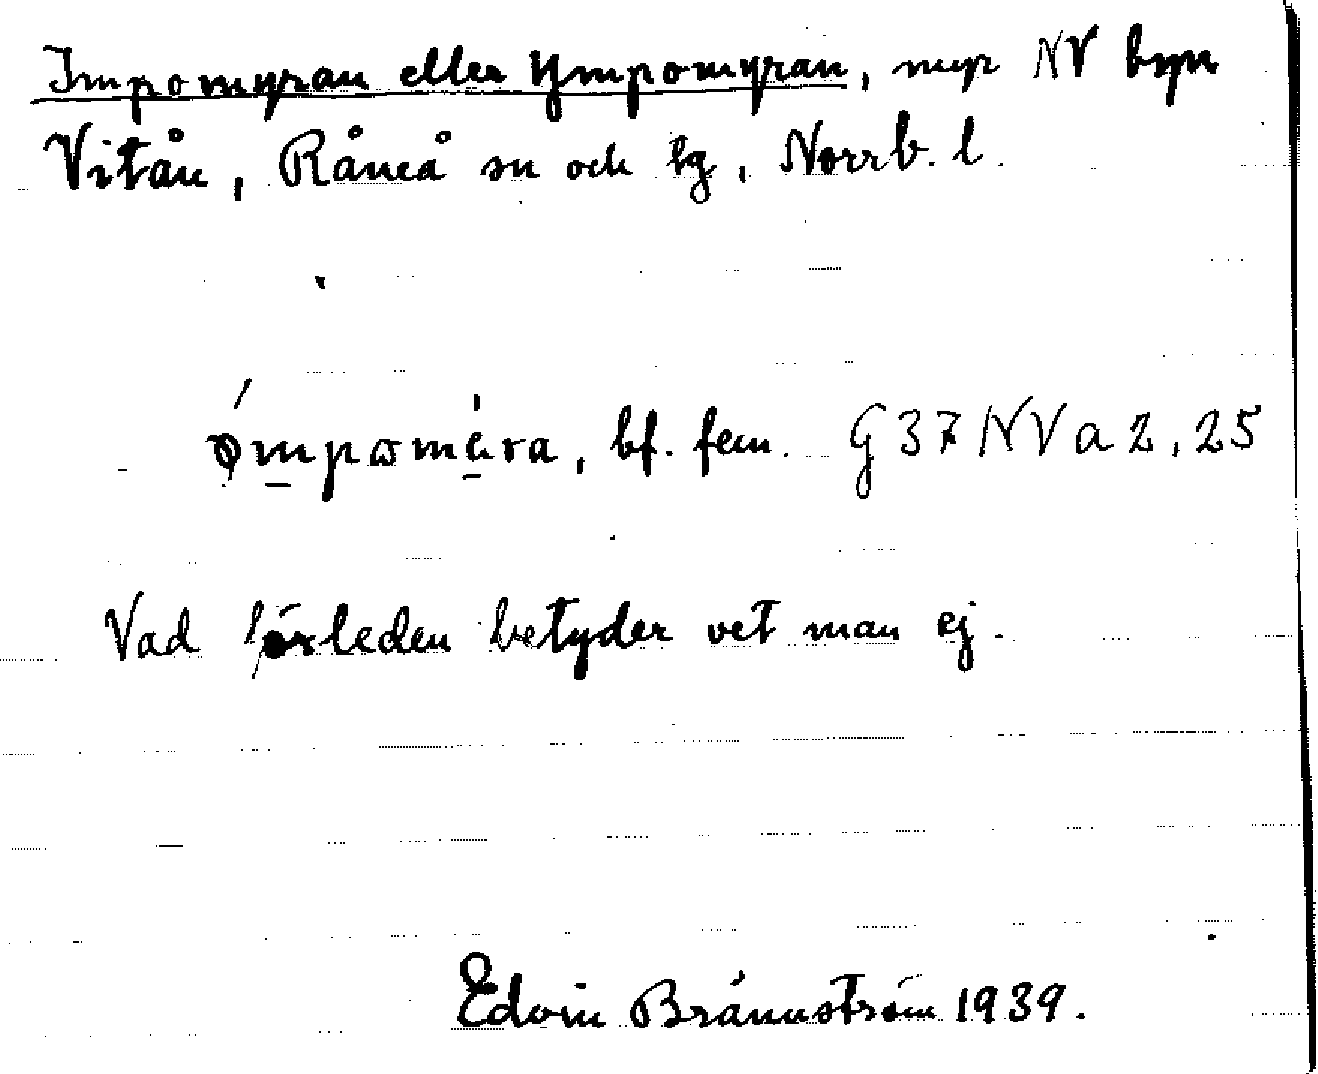 Impomyran eller Ympomyran, myr NV byn
Vitån, Råneå sn och tg, Norrb. l.
bf. fem. G 37 NV a 2, 25
Vad förleden betyder vet man ej.
Edvin Brännström 1939.